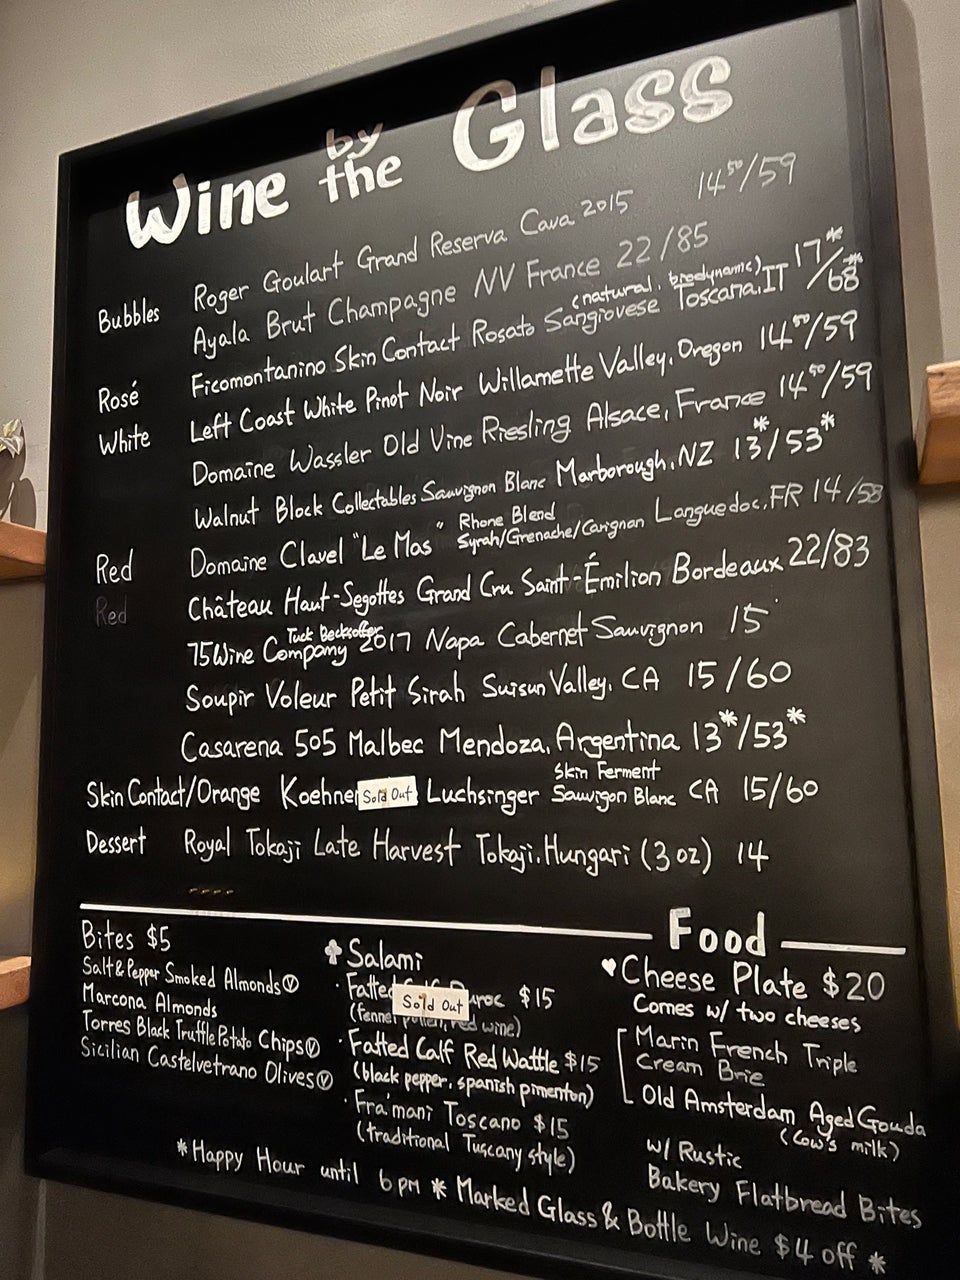 Wine by the Glass
Bubbles Roger Goulart Grand Reserva Cava 2015 14⁵⁰/59
Ayala Brut Champagne NV France 22/85
Rosé Ficomontanino Skin Contact Rosato Sangiovese (natural, brodynamic) Toscana, IT 17*/68*
White Left Coast White Pinot Noir Willamette Valley, Oregon 14⁵⁰/59
Domaine Wassler Old Vine Riesling Alsace, France 14⁵⁰/59
Walnut Block Collectables Sauvignon Blanc Marborough, NZ 13*/53*
Red Domaine Clavel "Le Mas" Rhone Blend Syrah/Grenache/Carignan Languedoc, FR 14/58
Red Château Haut-Segottes Grand Cru Saint-Émilion Bordeaux 22/83
75 Wine Company Tuck Becksoffer 2017 Napa Cabernet Sauvignon 15
Soupir Voleur Petit Sirah Suisun Valley, CA 15/60
Casarena 505 Malbec Mendoza, Argentina 13*/53*
Skin Contact/Orange Koehner Sold Out Luchsinger Skin Ferment Sauvigon Blanc CA 15/60
Dessert Royal Tokaji Late Harvest Tokaji, Hungari (3 oz) 14
Food
Bites $5
Salt & Pepper Smoked Almonds Ⓥ
Marcona Almonds
Torres Black Truffle Potato Chips Ⓥ
Sicilian Castelvetrano Olives Ⓥ
♣ Salami
· Fatted Duroc $15
Sold Out
(fennel pollen, red wine)
· Fatted Calf Red Wattle $15
(black pepper, spanish pimenton)
· Fra'mani Toscano $15
(traditional Tuscany style)
♥ Cheese Plate $20
Comes w/ two cheeses
Marin French Triple
Cream Brie
Old Amsterdam Aged Gouda
(Cow's milk)
w/ Rustic
Bakery Flatbread Bites
*Happy Hour until 6pm * Marked Glass & Bottle Wine $4 off *